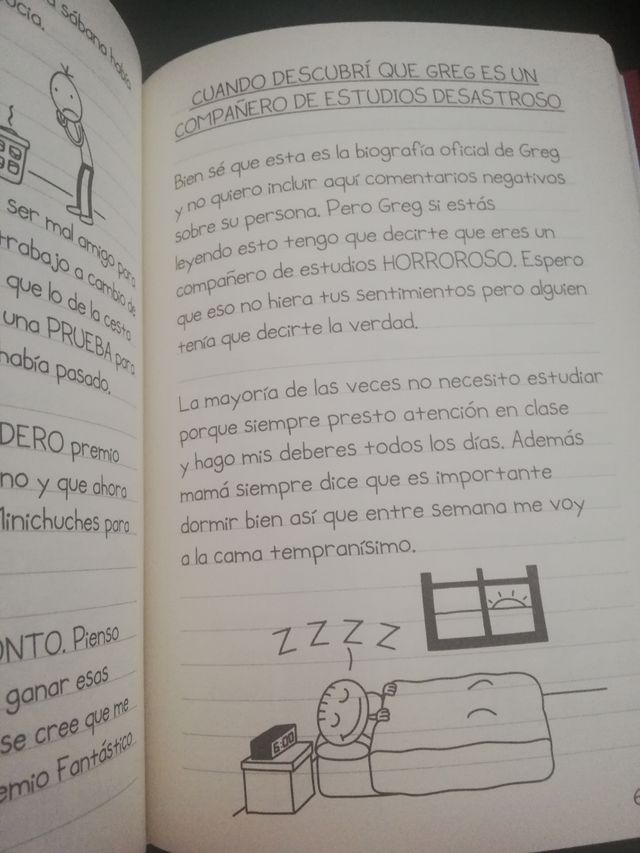 sábana había
ser mal amigo para
trabajo a cambio de
que lo de la cesta
una PRUEBA para
había pasado.
premio
no y que ahora
Minichuches para
Pienso
ganar esas
se cree que me
Fantástico
CUANDO DESCUBRÍ QUE GREG ES UN
COMPAÑERO DE ESTUDIOS DESASTROSO
Bien sé que esta es la biografía oficial de Greg
y no quiero incluir aquí comentarios negativos
sobre su persona. Pero Greg si estás
leyendo esto tengo que decirte que eres un
compañero de estudios HORROROSO. Espero
que eso no hiera tus sentimientos pero alguien
tenía que decirte la verdad.
La mayoría de las veces no necesito estudiar
porque siempre presto atención en clase
y hago mis deberes todos los días. Además
mamá siempre dice que es importante
dormir bien así que entre semana me voy
a la cama tempranísimo.
Z Z Z Z
6:00